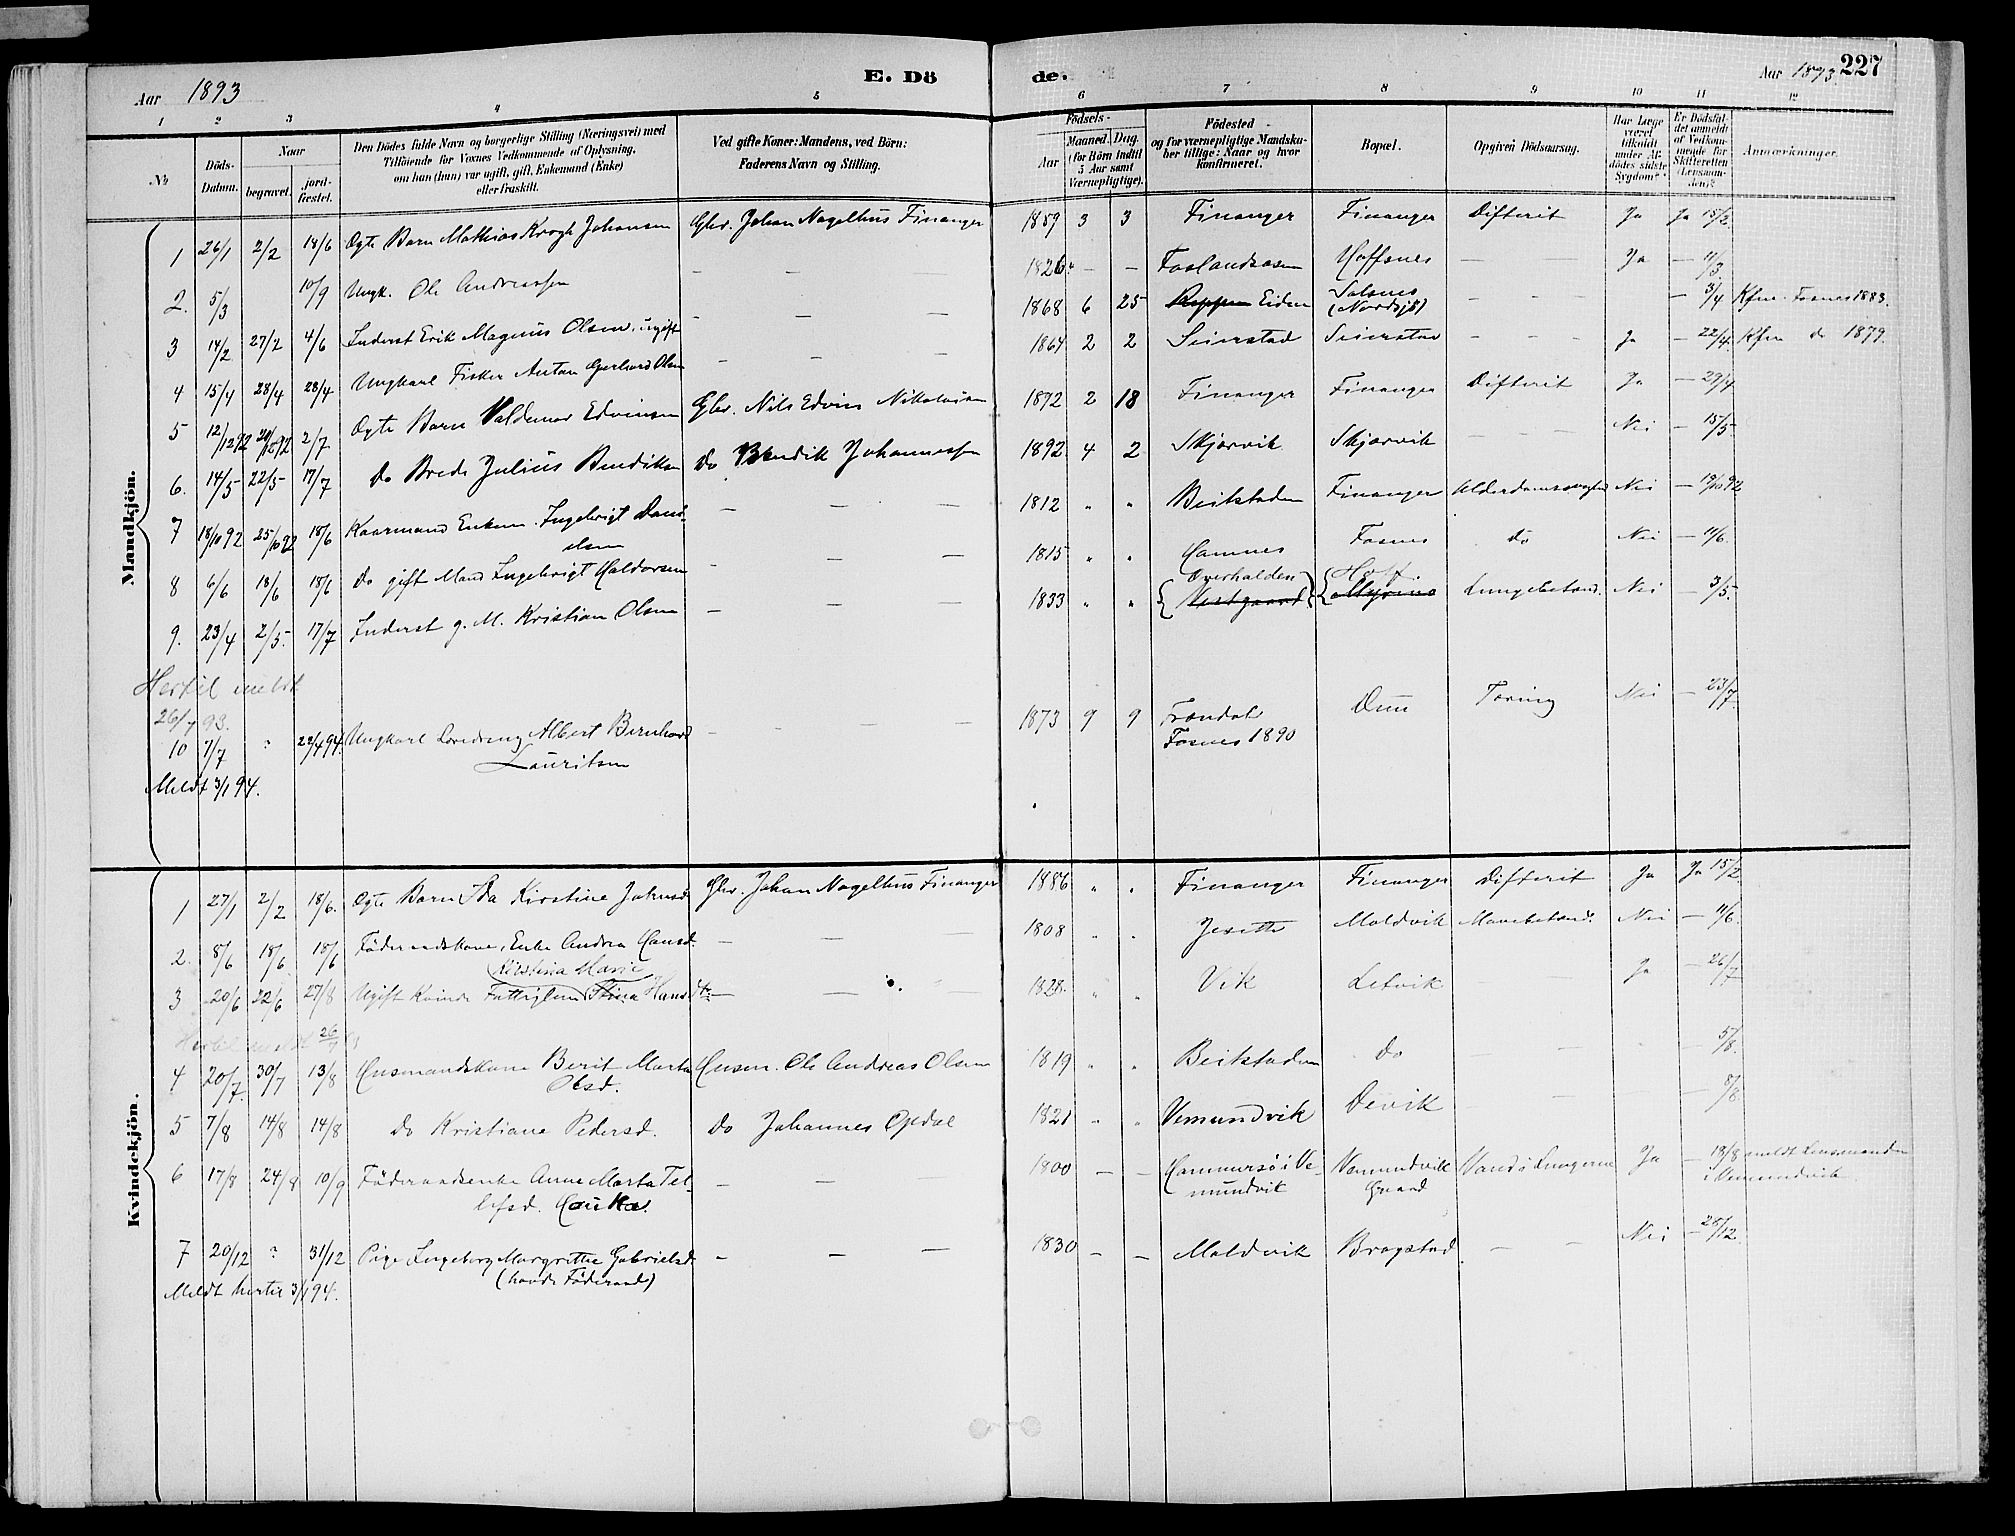 Aar 1893
E. Dö
de.
Aar 1893. 227
1 2 3 4 5 6 7 8 9 10 11 12
No.
Döds-Datum.
Naar
begravet.
jord-fæstet.
Den Dödes fulde Navn og borgerlige Stilling (Næringsvei) med
Tilföiende for Voxnes Vedkommende af Oplysning,
om han (hun) var ugift, gift, Enkemand (Enke)
eller fraskilt.
Ved gifte Koner: Mandens, ved Börn:
Faderens Navn og Stilling.
Födsels-
Aar
Maaned. Dag.
(for Börn indtil
5 Aar samt
Værnepligtige).
Födested
og for værnepligtige Mandska-
ber tillige: Naar og hvor
konfirmeret.
Bopæl.
Opgiven Dödsaarsag.
Har Læge
været
tilkaldt
under Af-
dödes sidste
Sygdom?
Er Dödsfal-
det anmeldt
af Vedkom-
mende for
Skifteretten
(Lensman-
den)?
Anmærkninger.
Mandkjön.
1 26/1 2/2 18/6 Ægte Barn Mathias Krogh Johansen Gbr. Johan Nagelhus Finanger 1889 3 3 Finanger Finanger Difterit Ja Ja 15/2
2. 5/3 10/9 Ungk. Ole Andreassen — — 1826 — — Faslandsosen Hoffsnes — — Ja — 11/3
3 14/2 27/2 4/6 Inderst Erik Magnus Olsen, ugift — — — 1868 6 25 Eiden Salsnes (Nordsjö) — — — 3/4 Kfm. Fosnes 1883.
4 15/4 28/4 28/4 Ungkarl Fisker Anton Gerhard Olsen — — — 1864 2 2 Seierstad Seierstad — — — Ja — 22/4. Kfm do 1879.
5 12/12 92 20/12 92 2/7 Ægte Barn Valdemar Edvinsen Gbr. Nils Edvin Nikolaisen 1892 2 18 Finanger Finanger Difterit Ja — 29/4
6. 14/5 22/5 17/7 do Brede Julius Bendiksen do Bendik Johannessen 1892 4 2 Skjærvik Skjærvik — — — Nei — 15/5
7 18/10 92 25/10 92 18/6 Kaarmand Enkem. Ingebrigt Dani-
elsen — — — 1812 " " Beitstaden Finanger Alderdomssvaghed Nei — 19/10 92
8 6/6 18/6 18/6 do gift Mand Ingebrigt Haldorsen — — — 1815 " " Hamnes Fosnes do Nei — 11/6.
9. 23/4 2/5. 17/7 Inderst g. M. Kristian Olsen — — — 1833 " " Overhalden Vestgaard Hoff. Lungebetænd. Nei — 3/5.
Hertil meldt
26/7 93.
10 7/7 ? 22/4 94. Ungkarl Albert Bernhard
Lauritsen — — — 1873 9 9 Frændal
Fosnes 1890 Dun Tæring Nei — 23/7.
Meldt 3/1 94.
Kvindekjön.
1 27/1 2/2 18/6. Ægte Barn Ida Kirstine Johansd. Gbr. Johan Nagelhus Finanger 1886 " " Finanger Finanger Difterit Ja Ja 15/2.
2. 8/6 18/6 18/6 Föderaadskone, Enke Andrea Hansd. — — — 1808 " " Jesette Moldvik Mavebetænd. Nei — 11/6.
Kirstina Marie
3 20/6 22/6 27/8 Ugift Kvinde Fattiglem Stina Hansdtr — — 1828. " " Vik Letvik — Ja — 26/7
Hertil meldt 26/7 93
4 20/7. 30/7 13/8 Husmandskone Berit Marta
Olsd. Husm. Ole Andreas Olsen 1819 " " Beitstaden do — — 5/8.
5 7/8 14/8 14/8 do Kristiane Pedersd. do Johannes Opdal 1821 " " Vemundvik Devik — — — 8/8
6 17/8 24/8 10/9 Föderaadsenke Anne Marta Tel-
lefsd. — — — 1800 — — Hammersö i Ve-
mundvik Vemundvik
Gaard Vand i Lungerne Ja — 18/8 meldt Lensmanden
i Vemundvik
7 20/12 ? 31/12 Pige Ingeborg Margrethe Gabrielsd.
(havde Föderaad) — — — 1830 — — Moldvik Bragstad — — Nei — 28/12.
Meldt hertil 3/1 94.